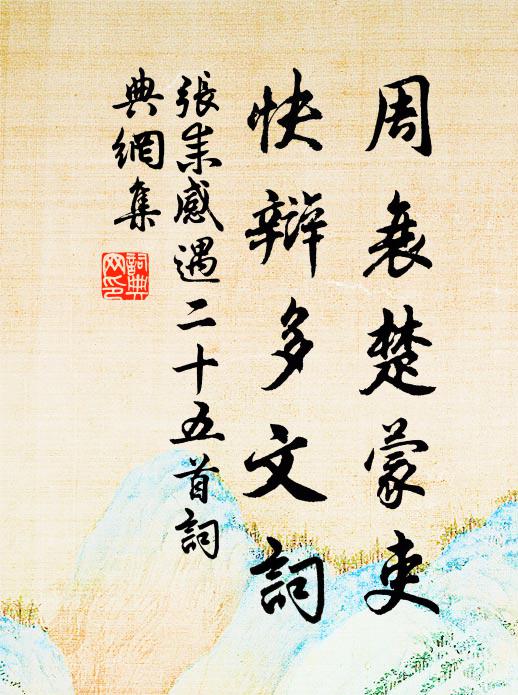 周衰楚蒙吏
快辯多文詞
張耒感遇二十五首詞
典網集
詞典
网印